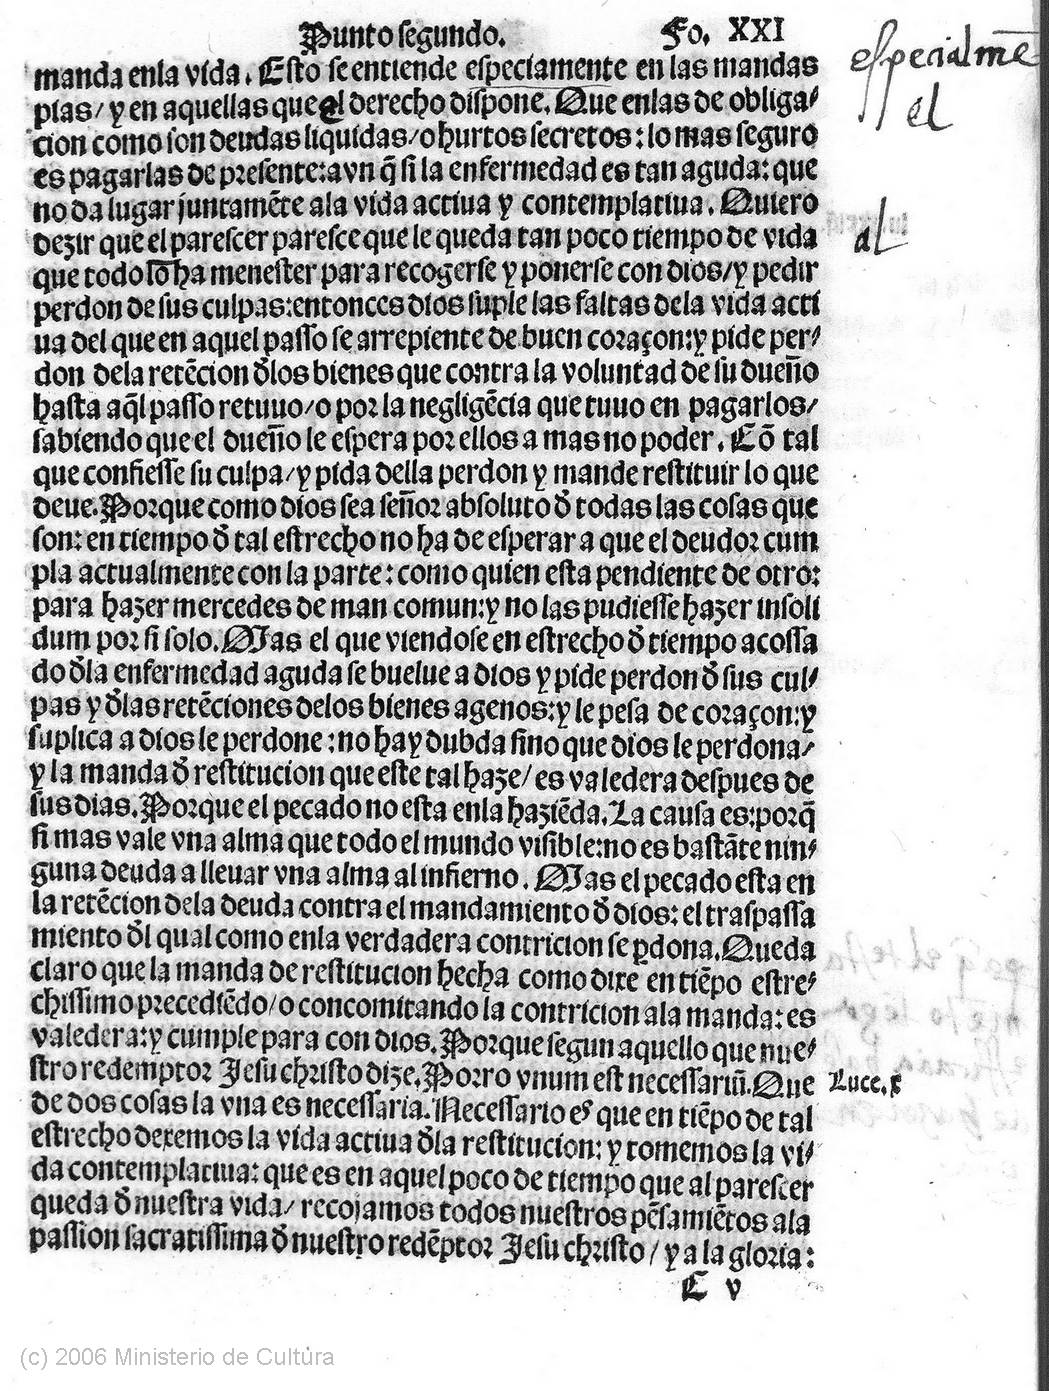 Punto segundo. Fo. XXI
manda enla vida. Esto se entiende especiamente en las mandas
pias/ y en aquellas que el derecho dispone. Que enlas de obliga-
cion como son deudas liquidas/o hurtos secretos: lo mas seguro
es pagarlas de presente: avn q̃ si la enfermedad es tan aguda: que
no da lugar juntamẽte ala vida actiua y contemplatiua. Quiero
dezir que el parescer paresce que le queda tan poco tiempo de vida
que todo lo ha menester para recogerse y ponerse con dios/y pedir
perdon de sus culpas: entonces dios suple las faltas dela vida acti
ua del que en aquel passo se arrepiente de buen coraçon: y pide per-
don dela retẽcion đlos bienes que contra la voluntad de su dueño
hasta aq̃l passo retuuo/o por la negligẽcia que tuuo en pagarlos/
sabiendo que el dueño le espera por ellos a mas no poder. Cõ tal
que confiesse su culpa/y pida della perdon y mande restituir lo que
deue. Porque como dios sea señor absoluto đ todas las cosas que
son: en tiempo đ tal estrecho no ha de esperar a que el deudor cum
pla actualmente con la parte: como quien esta pendiente de otro:
para hazer mercedes de man comun: y no las pudiesse hazer insoli
dum por si solo. Mas el que viendose en estrecho đ tiempo acossa
do đla enfermedad aguda se buelue a dios y pide perdon đ sus cul-
pas y đlas retẽciones delos bienes agenos: y le pesa de coraçon: y
suplica a dios le perdone: no hay dubda sino que dios le perdona/
y la manda đ restitucion que este tal haze/ es valedera despues de
sus dias. Porque el pecado no esta enla haziẽda. La causa es: porq̃
si mas vale vna alma que todo el mundo visible: no es bastãte nin-
guna deuda a lleuar vna alma al infierno. Mas el pecado esta en
la retẽcion dela deuda contra el mandamiento đ dios: el traspassa
miento đl qual como enla verdadera contricion se ꝑdona. Queda
claro que la manda de restitucion hecha como dixe en tiẽpo estre-
chissimo precediẽdo/o concomitando la contricion ala manda: es
valedera: y cumple para con dios. Porque segun aquello que nue-
stro redemptor Jesu christo dize. Porro vnum est necessariũ. Que
de dos cosas la vna es necessaria. Necessario es que en tiẽpo de tal
estrecho dexemos la vida actiua đla restitucion: y tomemos la vi-
da contemplatiua: que es en aquel poco de tiempo que al parescer
queda đ nuestra vida/ recojamos todos nuestros pẽsamiẽtos ala
passion sacratissima đ nuestro redẽptor Jesu christo/ y a la gloria:
C v
especialmẽ
el
al
Luce. x
(c) 2006 Ministerio de Cultura